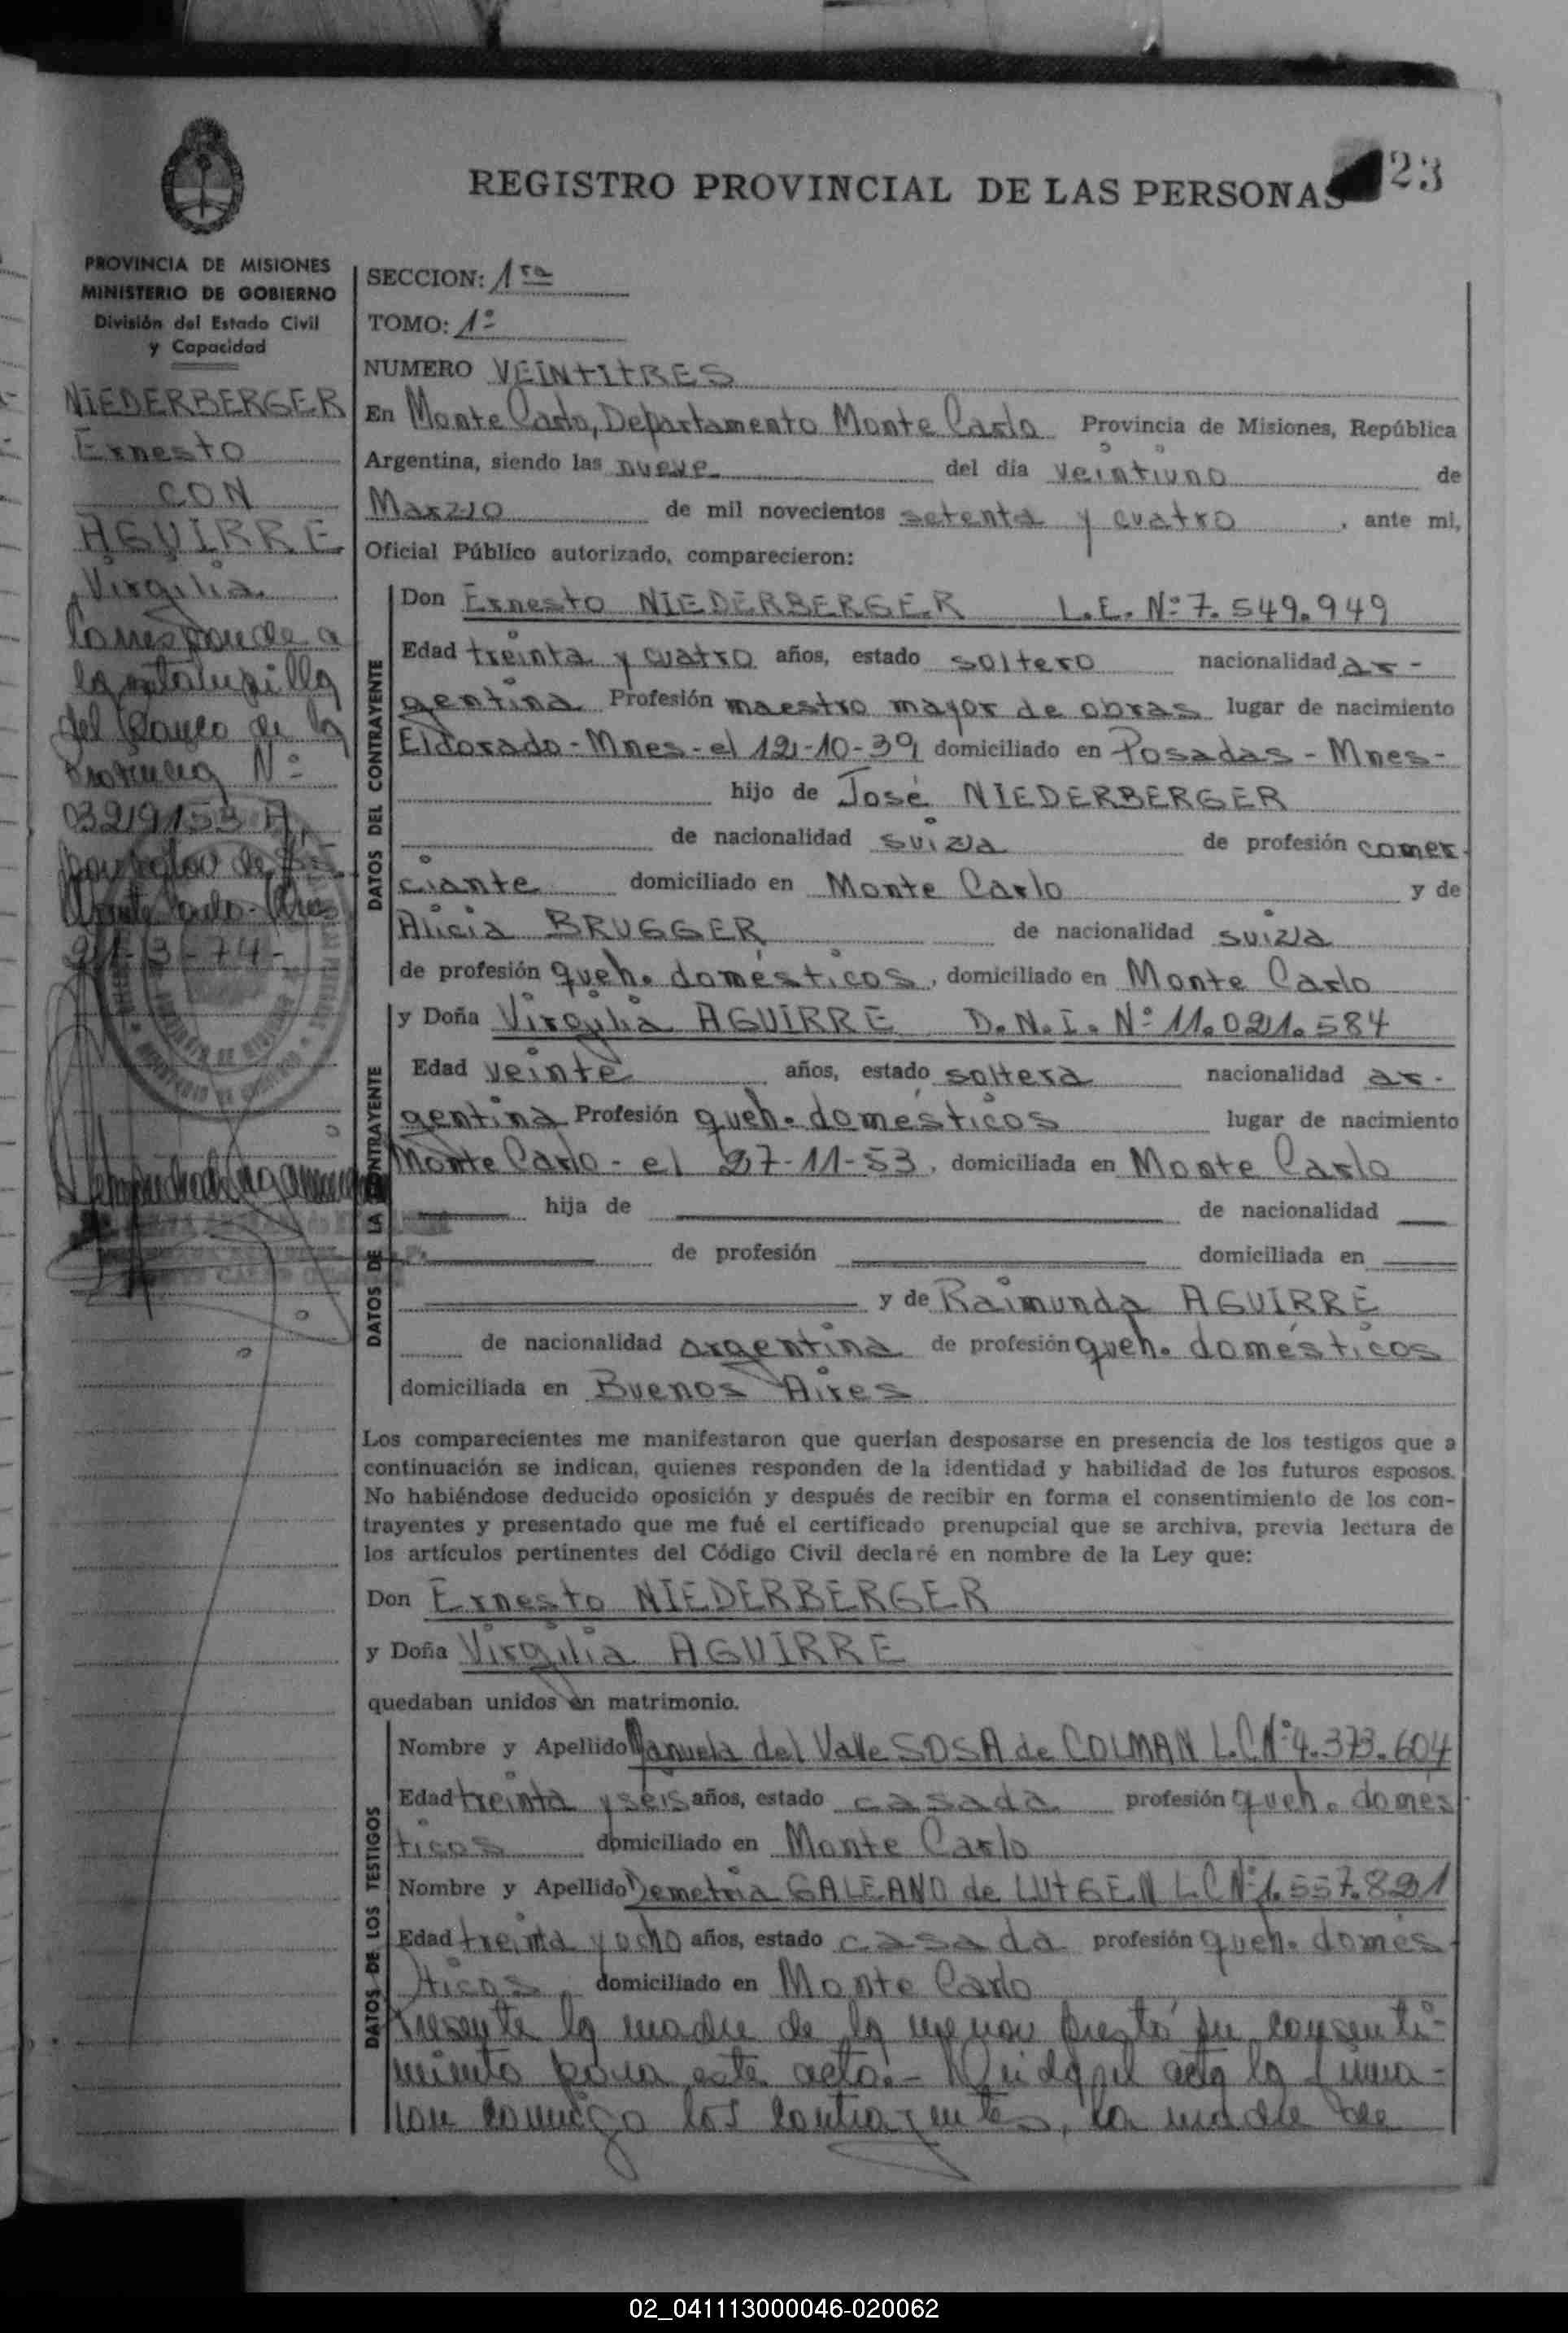 23
REGISTRO PROVINCIAL DE LAS PERSONAS
PROVINCIA DE MISIONES
MINISTERIO DE GOBIERNO
División del Estado Civil
y Capacidad
NIEDERBERGER
Ernesto
CON
AGUIRRE
Virgilia
Corresponde a
la estampilla
del Banco de la
Provincia Nº
0329153 A,
por valor de
Monte Carlo - Mnes
21-3-74-
SECCION: 1ra
TOMO: 1º
NUMERO VEINTITRES
En Monte Carlo, Departamento Monte Carlo Provincia de Misiones, República
Argentina, siendo las nueve del día veintiuno de
Marzo de mil novecientos setenta y cuatro, ante mi,
Oficial Público autorizado, comparecieron:
DATOS DEL CONTRAYENTE
Don Ernesto NIEDERBERGER L.E. Nº 7.549.949
Edad treinta y cuatro años, estado soltero nacionalidad ar-
gentina Profesión maestro mayor de obras lugar de nacimiento
Eldorado-Mnes-el 12-10-39 domiciliado en Posadas-Mnes-
hijo de José NIEDERBERGER
de nacionalidad suiza de profesión comer-
ciante domiciliado en Monte Carlo y de
Alicia BRUGGER de nacionalidad suiza
de profesión queh. domésticos, domiciliado en Monte Carlo
DATOS DE LA CONTRAYENTE
y Doña Virgilia AGUIRRE D.N.I. Nº 11.021.584
Edad veinte años, estado soltera nacionalidad ar-
gentina Profesión queh. domésticos lugar de nacimiento
Monte Carlo - el 27-11-53, domiciliada en Monte Carlo
hija de de nacionalidad
de profesión domiciliada en
y de Raimunda AGUIRRE
de nacionalidad argentina de profesión queh. domésticos
domiciliada en Buenos Aires
Los comparecientes me manifestaron que querían desposarse en presencia de los testigos que a
continuación se indican, quienes responden de la identidad y habilidad de los futuros esposos.
No habiéndose deducido oposición y después de recibir en forma el consentimiento de los con-
trayentes y presentado que me fué el certificado prenupcial que se archiva, previa lectura de
los artículos pertinentes del Código Civil declaré en nombre de la Ley que:
Don Ernesto NIEDERBERGER
y Doña Virgilia AGUIRRE
quedaban unidos en matrimonio.
DATOS DE LOS TESTIGOS
Nombre y Apellido Manuela del Valle SOSA de COLMAN L.C Nº 4.373.604
Edad treinta y seis años, estado casada profesión queh. domés
ticos domiciliado en Monte Carlo
Nombre y Apellido Demetria GALEANO de LUTGEN L.C Nº 1.557.821
Edad treinta y ocho años, estado casada profesión queh. domés-
ticos, domiciliado en Monte Carlo
Presente la madre de la menor prestó su consenti-
miento para este acto.- Leída el acta la firma-
ron conmigo los contrayentes, la madre de
02_041113000046-020062